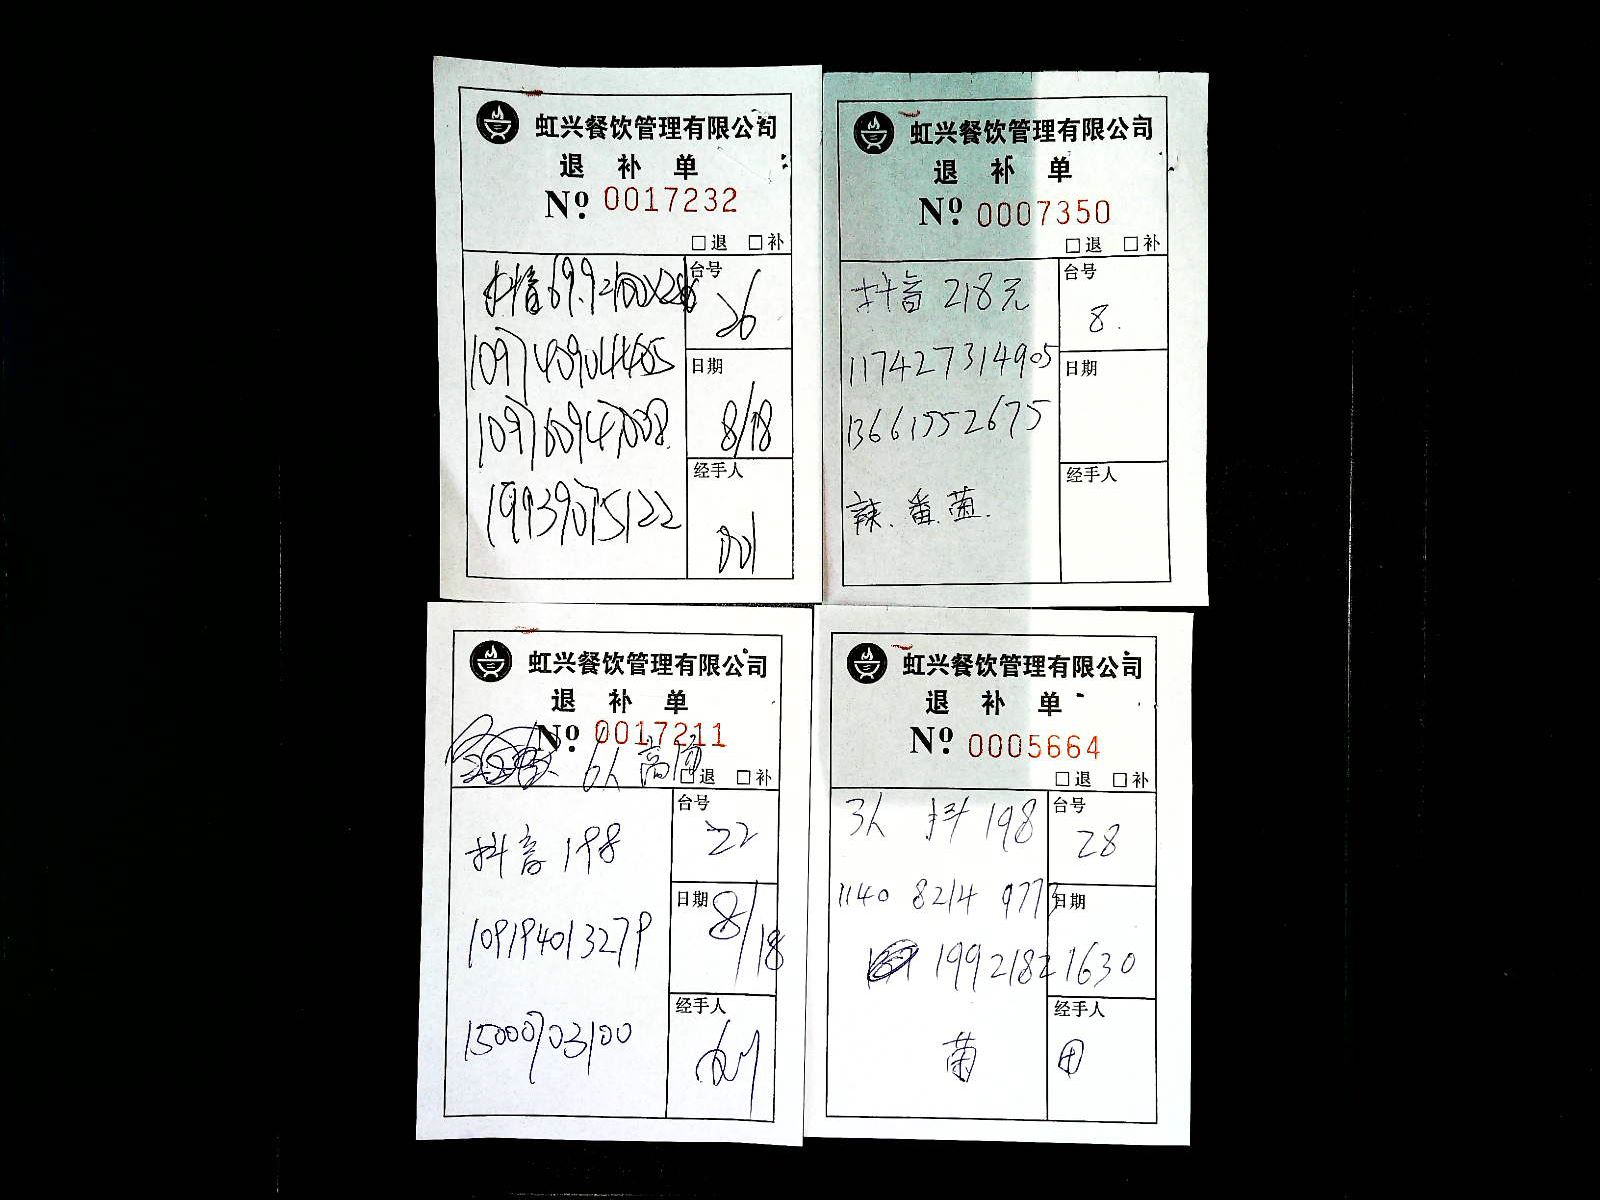 虹兴餐饮管理有限公司
退 补 单
Nº 0017232
□退 □补
抖音69.9 100×2
台号
26
109740904465
109760947008
日期
8/18
19939075122
经手人
虹兴餐饮管理有限公司
退 补 单
Nº 0007350
□退 □补
抖音 218元
台号
8.
117427314905
日期
13661552675
经手人
辣.番.菌.
虹兴餐饮管理有限公司
退 补 单
Nº 0017211
6人
□退 □补
抖音 198
台号
22
日期
8/18
109194013279
经手人
15000703100
虹兴餐饮管理有限公司
退 补 单
Nº 0005664
□退 □补
3人 抖 198
台号
28
1140 8214 9773
日期
199 2182 1630
经手人
菌
田